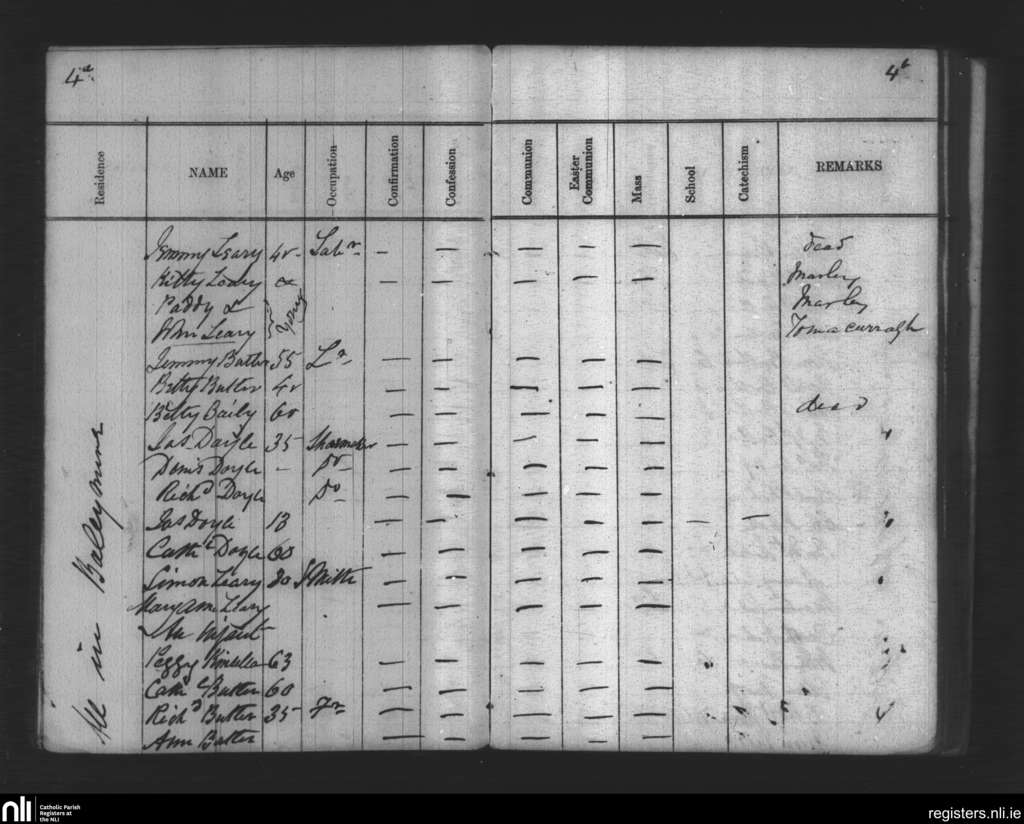 4a
4b
Residence NAME Age Occupation Confirmation Confession Communion Easter Communion Mass School Catechism REMARKS
All in Baleymore
Jemmy Leary 40 - Labr - - - - - dead
Kitty Leary - - - - - Marley
Paddy & Marley
Wm Leary } Young Tomacurragh
Jemmy Butler 55 Lr - - - - -
Betty Butler 40 - - - - -
Betty Baily 60 - - - - - dead
Jas Doyle 35 Shoemaker - - - - - 4
Denis Doyle - Do - - - - -
Richd Doyle Do - - - - -
Jas Doyle 13 - - - - - - -
Cathe Doyle 60 - - - - -
Simon Leary 30 Smith - - - - -
Mary Anne Leary - - - - -
An infant
Peggy Kinsella 63 - - - - -
Cathe Butler 60 - - - - -
Richd Butler 35 Fr - - - - - 4
Ann Butler - - - - -
nli Catholic Parish
Registers at
the NLI
registers.nli.ie